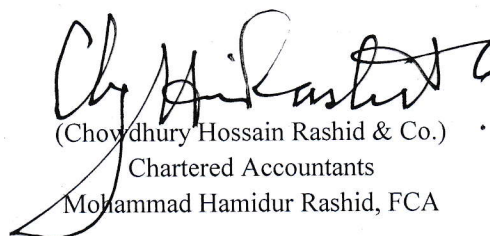 (Chowdhury Hossain Rashid & Co.)
Chartered Accountants
Mohammad Hamidur Rashid, FCA